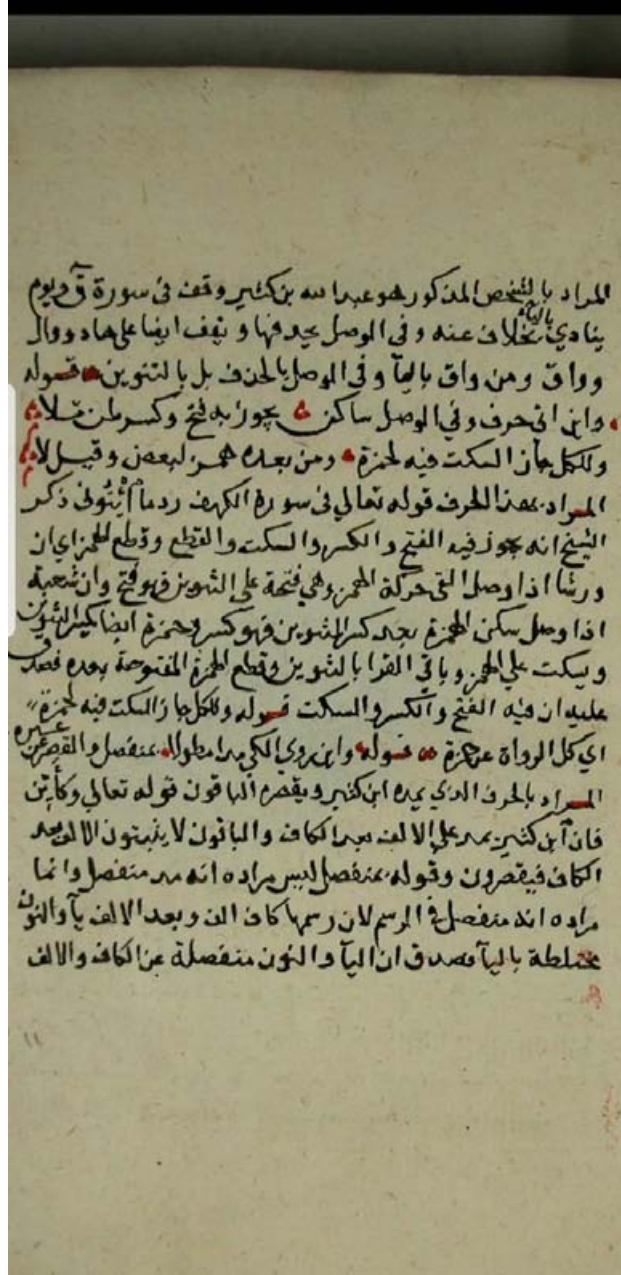 المراد بالشخص المذكور هو عبدالله بن كثير وقف في سورة ق ويوم
ينادي بالياء بخلاف عنه وفي الوصل بحذفها ويقف ايضا على هاد ووال
وواق ومن واق بالياء وفي الوصل بالحذف بل بالتنوين قوله
واين اتى حرف وفي الوصل ساكن يجوز به فتح وكسر
وللكل جاز السكت فيه لحمزة ومن بعده همز لبعض وقيل لا
المراد بهذا الحرف قوله تعالي في سورة الكهف ردما ائتوني ذكر
الشيخ انه يجوز فيه الفتح والكسر والسكت والقطع وقطع الهمز اي ان
ورشا اذا وصل القى حركة الهمز وهي فتحة على التنوين فهو فتح وان شعبة
اذا وصل سكن الهمزة بعد كسر التنوين فهو كسر وحمزة ايضا يكسر التنوين
ويسكت علي الهمز وباقي القرا بالتنوين وقطع الهمزة المفتوحة بعده فصدق
عليه ان فيه الفتح والكسر والسكت قوله وللكل جاز السكت فيه لحمزة
اي كل الرواة عن حمزة قوله واين روي المكي مدا مطولا بمنفصل والقصر عن غيره
المراد بالحرف الذي يمده ابن كثير ويقصره الباقون قوله تعالي وكأين
فان ابن كثير يمد علي الالف بعد الكاف والباقون لا يثبتون الالف بعد
الكاف فيقصرون وقوله بمنفصل ليس مراده انه مد منفصل وانما
مراده انه منفصل في الرسم لان رسمها كاف الف وبعد الالف يآ والنون
مختلطة باليآ فصدق ان اليآ والنون منفصلة عن الكاف والالف